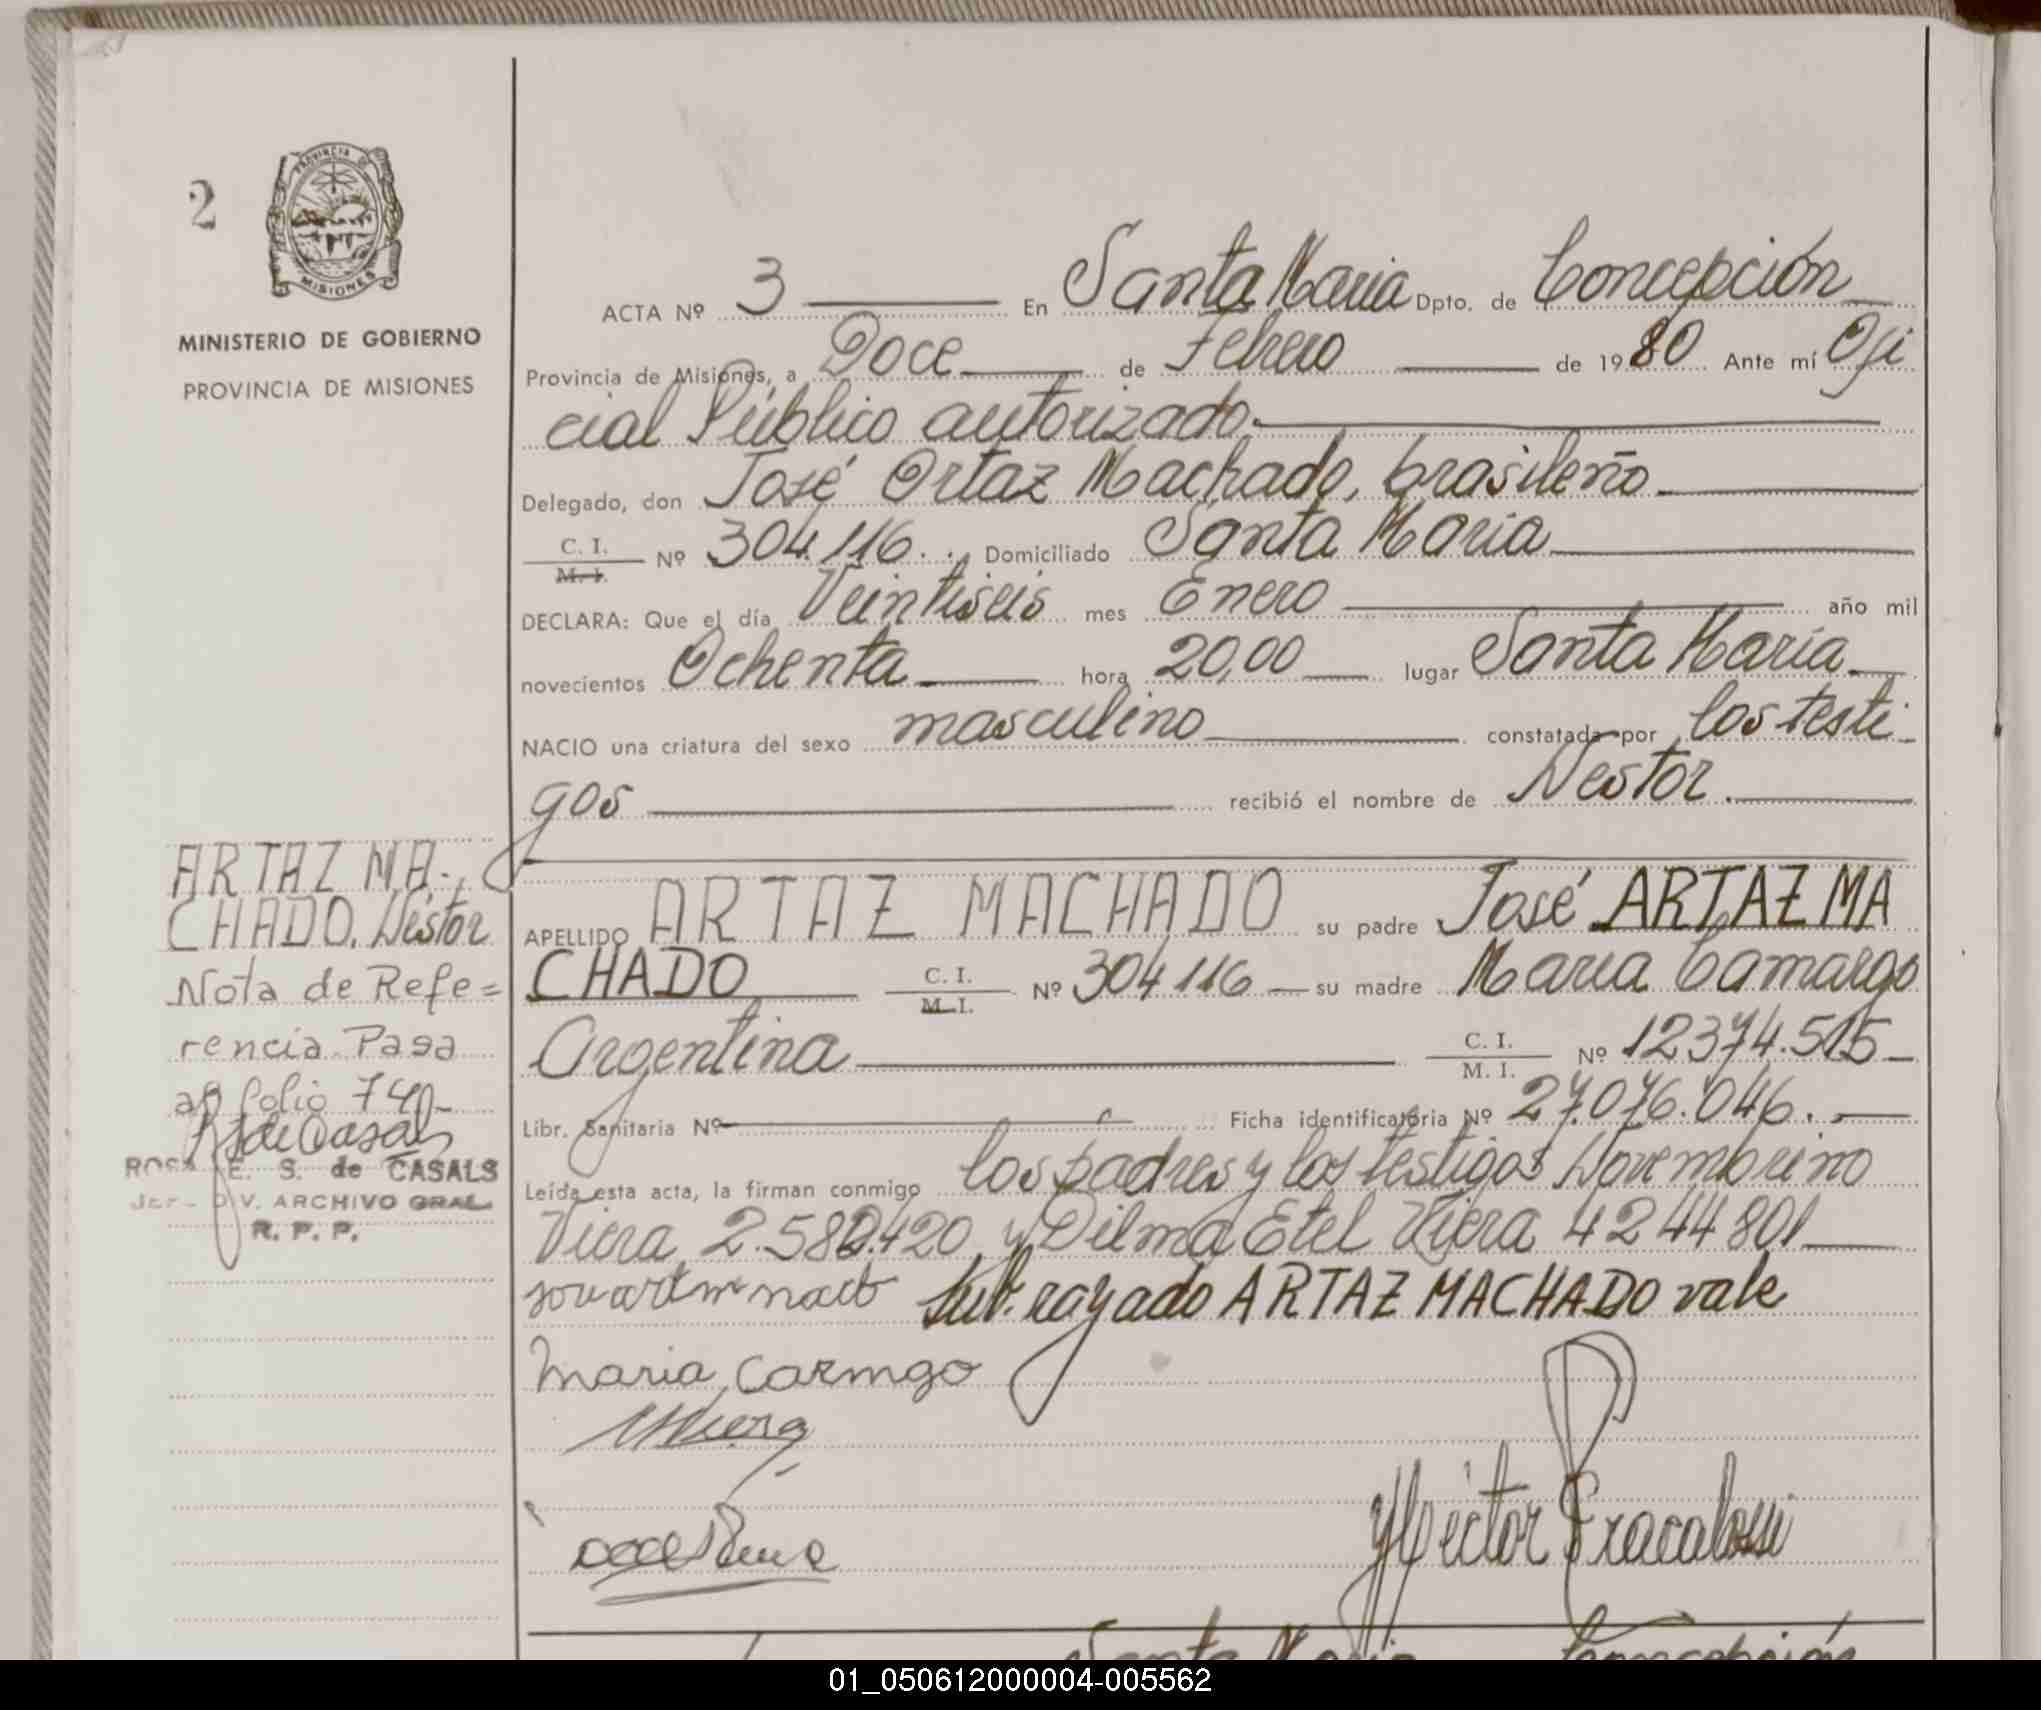 2
PROVINCIA DE
MISIONES
MINISTERIO DE GOBIERNO
PROVINCIA DE MISIONES
ACTA Nº 3 En Santa Maria Dpto. de Concepción
Provincia de Misiones, a Doce de Febrero de 1980 Ante mí Ofi
cial Público autorizado.
Delegado, don José Ortaz Machado, brasileño
C. I. M. I. Nº 304.116.. Domiciliado Santa Maria
DECLARA: Que el día Veintiseis mes Enero año mil
novecientos Ochenta hora 20,00 lugar Santa María
NACIO una criatura del sexo masculino constatada por los testi
gos recibió el nombre de Nestor
APELLIDO ARTAZ MACHADO su padre José ARTAZ MA
CHADO C. I. M. I. Nº 304116 su madre Maria Camargo
Argentina C. I. M. I. Nº 12.374.515
Libr. Sanitaria Nº Ficha identificatória Nº 27.076.046.
Leída esta acta, la firman conmigo los padres y los testigos Novembrino
Viera 2.582.420 y Dilma Etel Viera 4244801
Sub. rayado ARTAZ MACHADO vale
Maria Carmgo
Héctor Fracalossi
ARTAZ MA-
CHADO. Néstor
Nota de Refe=
rencia Pasa
al folio 74
R S de Casals
ROSA E. S. de CASALS
JEF - DIV. ARCHIVO GRAL
R. P. P.
Santa Maria Concepción
01_050612000004-005562